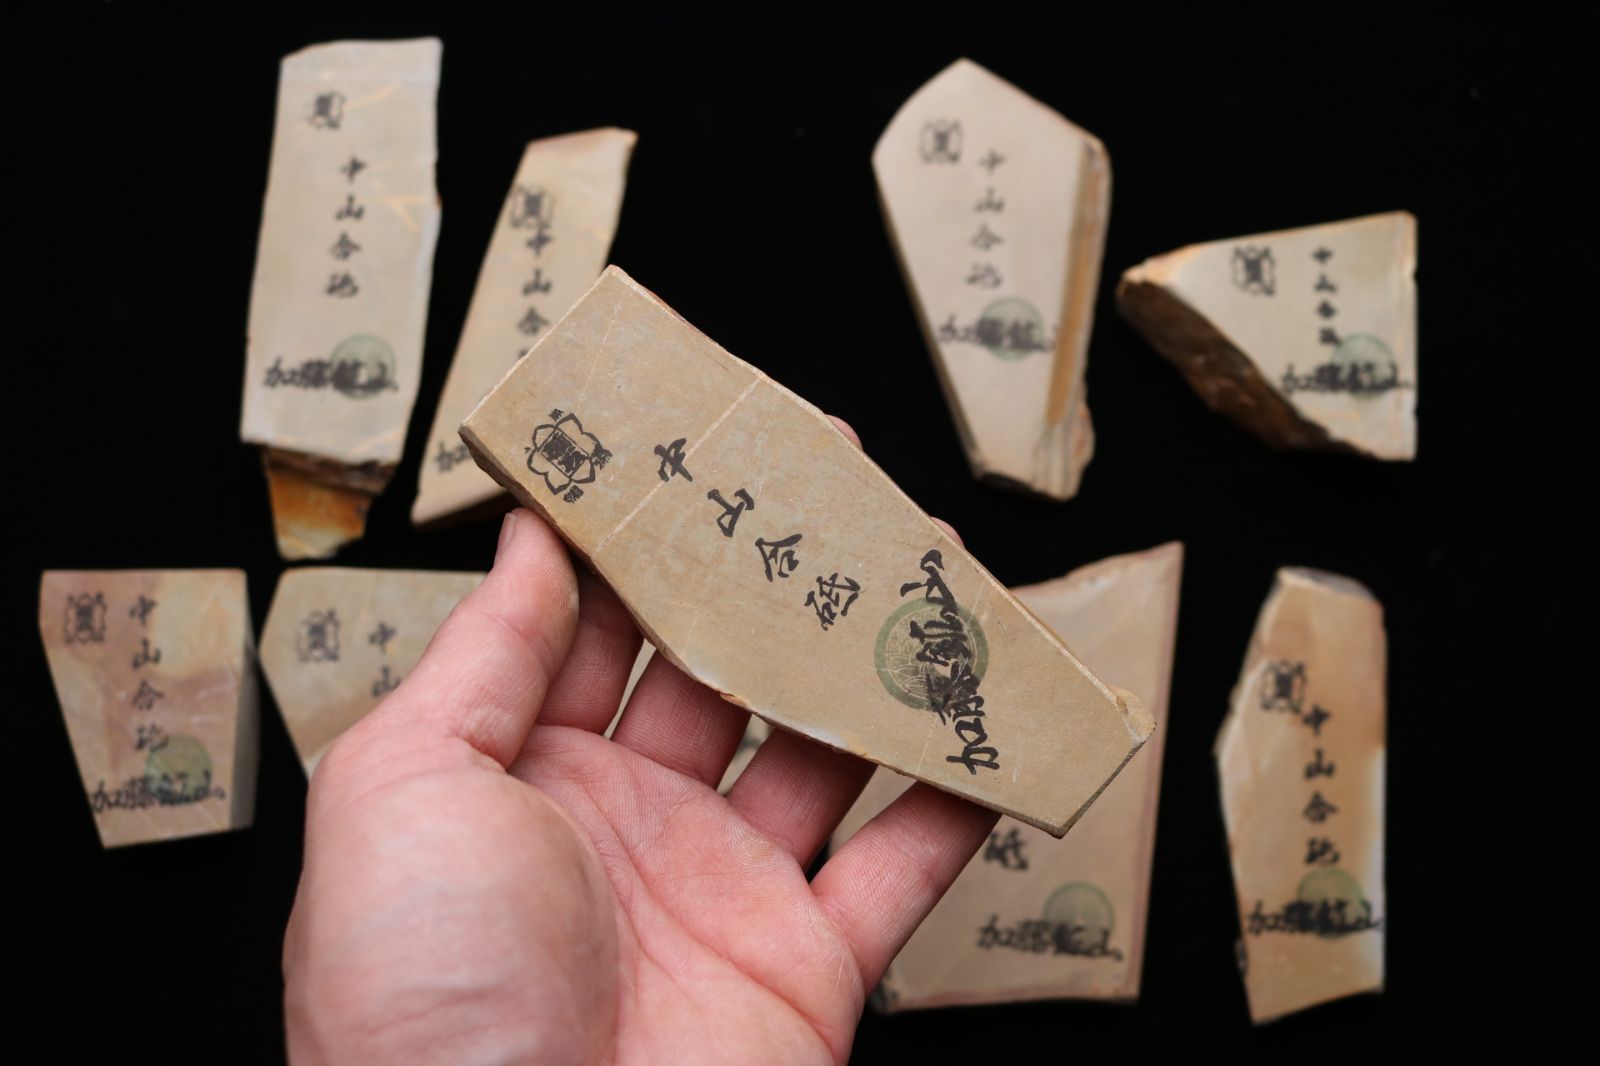 中山合砥
加藤鉱山
中山合
加
中山合砥
加藤鉱山
中山合砥
加藤鉱山
中山合砥
加藤鉱山
中山合砥
加藤鉱山
中山
砥
加藤鉱山
中山合砥
加藤鉱山